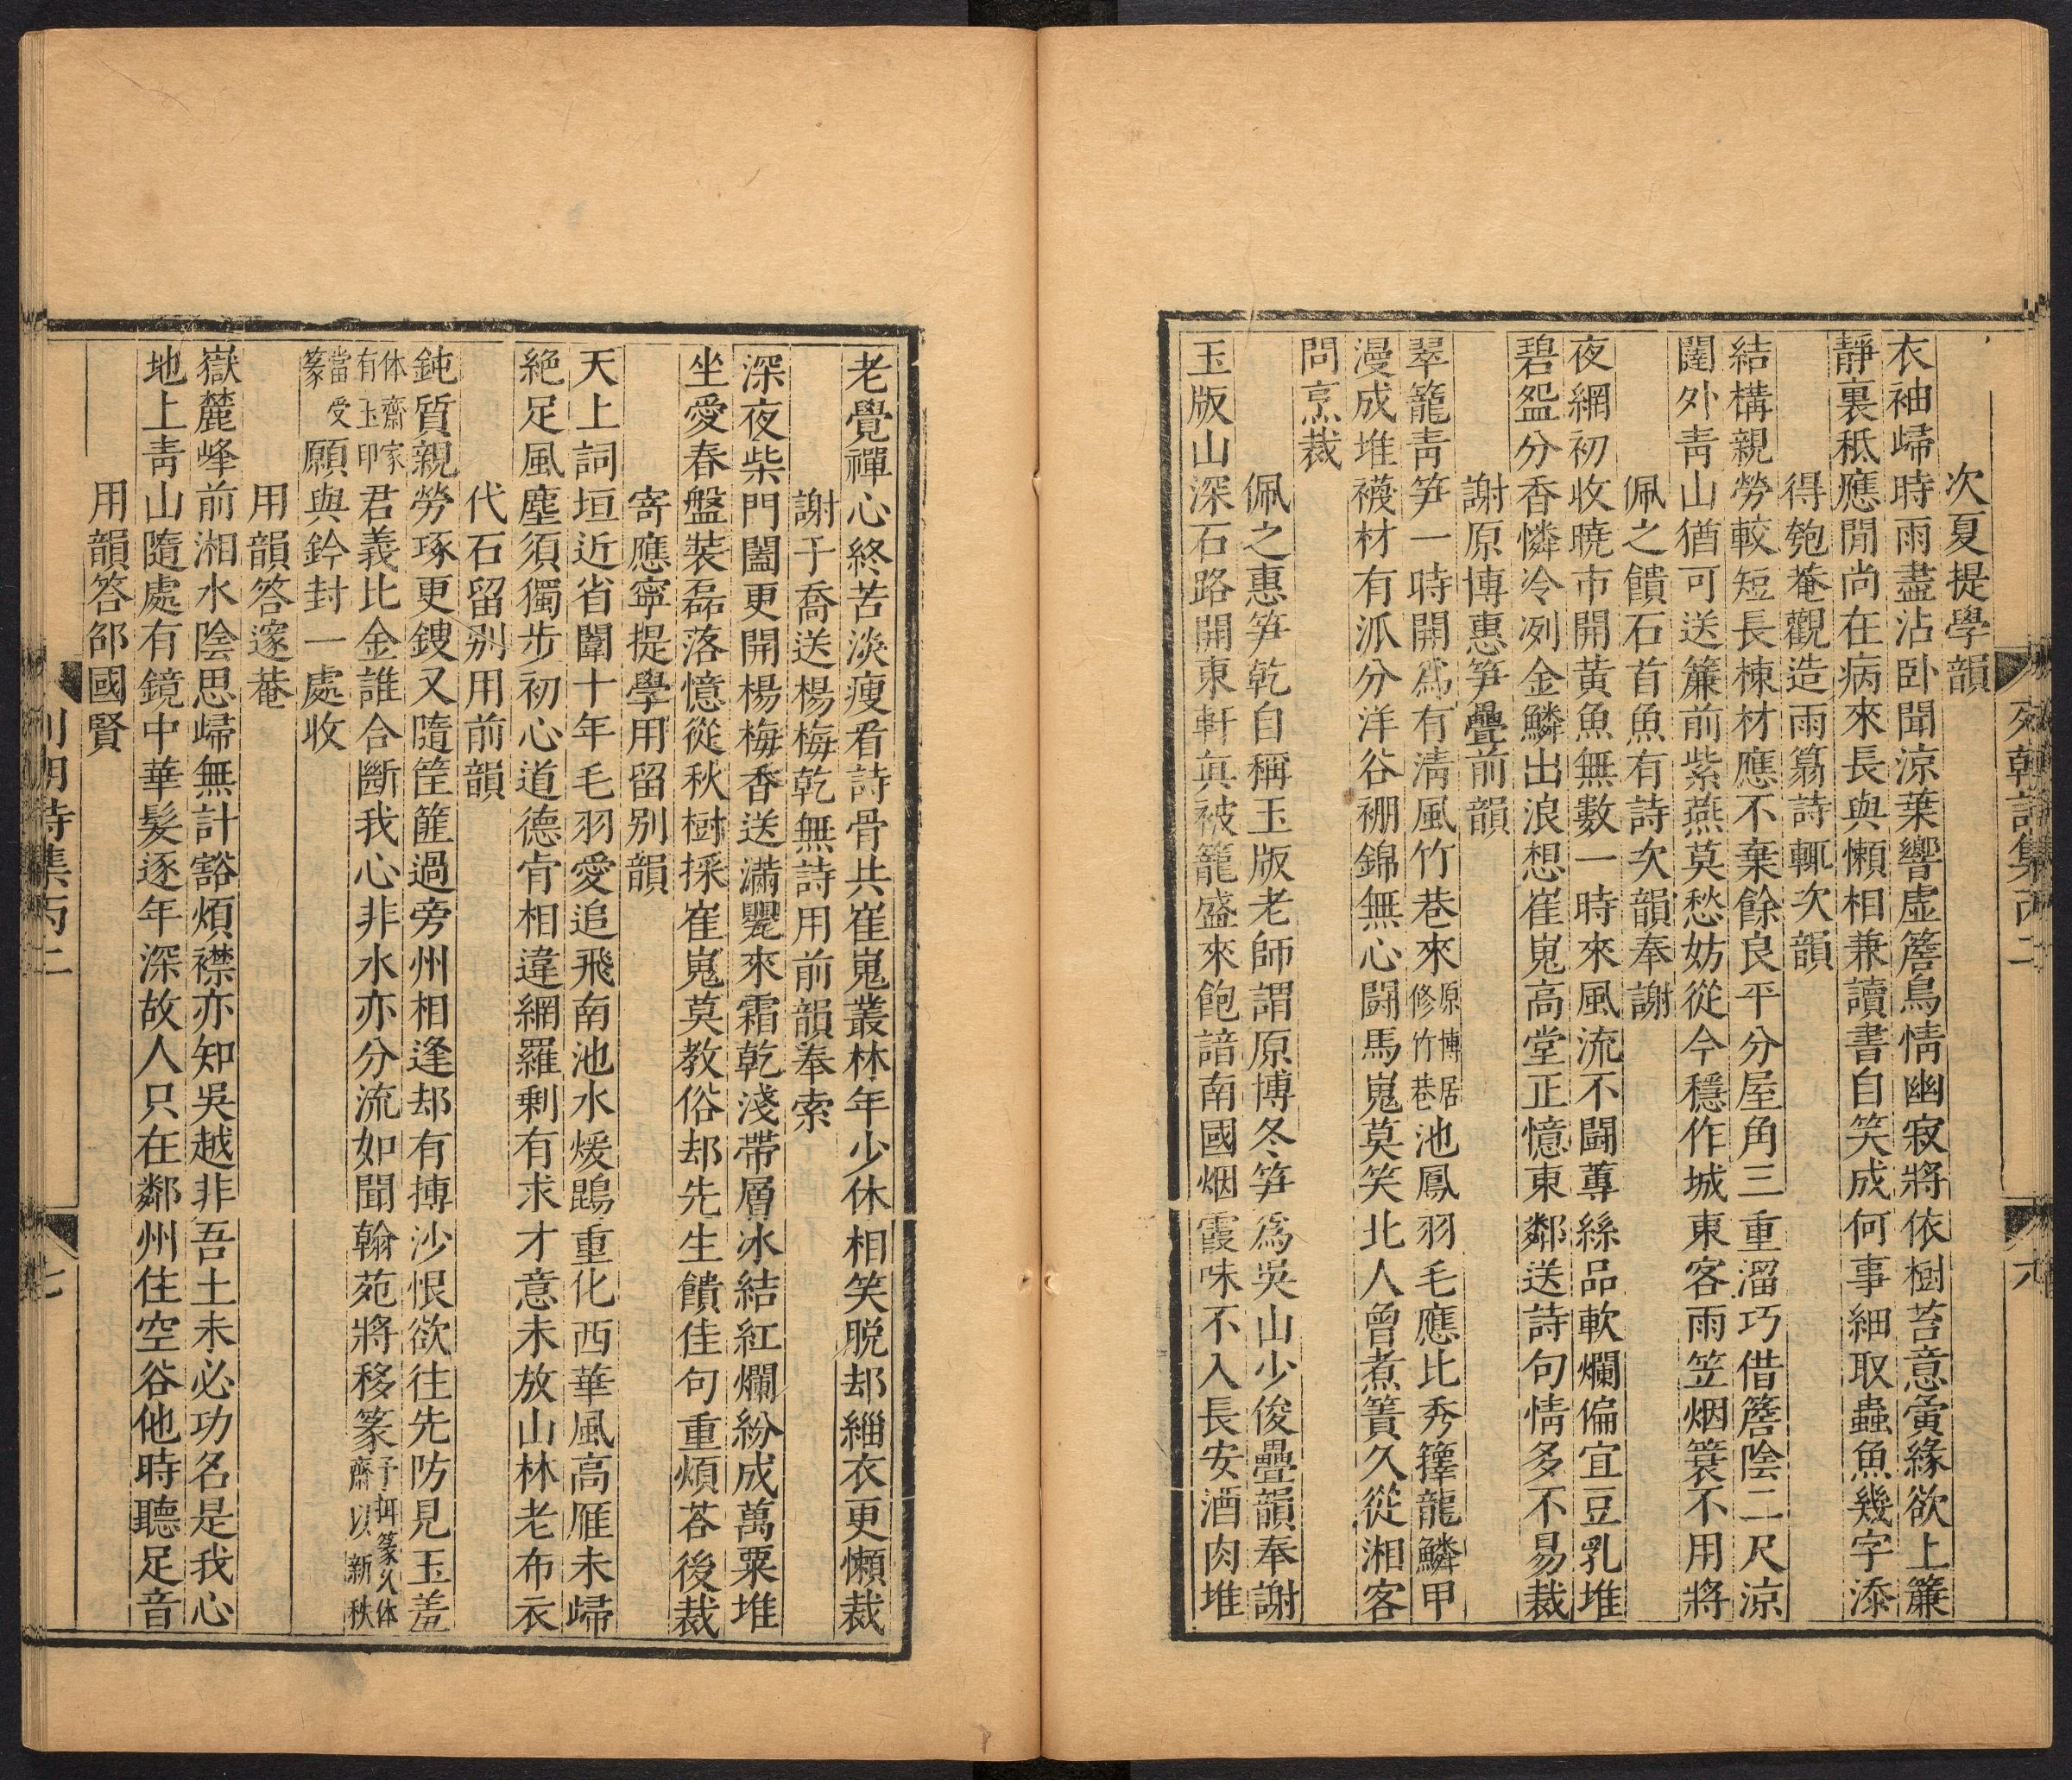 次夏提學韻
衣袖歸時雨盡沾卧聞涼葉響虛簷鳥情幽寂將依樹苔意夤緣欲上簾
靜裏秪應閒尚在病來長與懶相兼讀書自笑成何事細取蟲魚幾字添
得匏菴觀造雨篛詩輒次韻
結構親勞較短長棟材應不棄餘良平分屋角三重溜巧借簷陰二尺涼
闥外青山猶可送簾前紫燕莫愁妨從今穩作城東客雨笠烟簑不用將
佩之饋石首魚有詩次韻奉謝
夜網初收曉市開黃魚無數一時來風流不鬪蓴絲品軟爛偏宜豆乳堆
碧盌分香憐冷冽金鱗出浪想崔嵬高堂正憶東鄰送詩句情多不易裁
謝原博惠笋疊前韻
翠籠靑笋一時開爲有淸風竹巷來原博居修竹巷池鳳羽毛應比秀籜龍鱗甲
漫成堆襪材有派分洋谷裯錦無心鬪馬嵬莫笑北人曾煮簀久從湘客
問烹裁
佩之惠笋乾自稱玉版老師謂原博冬笋爲吳山少俊疊韻奉謝
玉版山深石路開東軒眞被籠盛來飽諳南國烟霞味不入長安酒肉堆
老覺禪心終苦淡瘦看詩骨共崔嵬叢林年少休相笑脱却緇衣更懶裁
謝于喬送楊梅乾無詩用前韻奉索
深夜柴門闔更開楊梅香送滿甖來霜乾淺帶層冰結紅爛紛成萬粟堆
坐愛春盤裝磊落憶從秋樹採崔嵬莫教俗却先生饋佳句重煩荅後裁
寄應寧提學用留别韻
天上詞垣近省闈十年毛羽愛追飛南池水煖鵾重化西華風高雁未歸
絶足風塵須獨步初心道德肯相違網羅剩有求才意未放山林老布衣
代石留别用前韻
鈍質親勞琢更鎪又隨筐篚過旁州相逢却有摶沙恨欲往先防見玉羞
体齋家有玉印君義比金誰合斷我心非水亦分流如聞翰苑將移篆予與篆久体齋以新秩
當受篆願與鈐封一處收
用韻答邃菴
嶽麓峰前湘水陰思歸無計豁煩襟亦知吳越非吾土未必功名是我心
地上靑山隨處有鏡中華髮逐年深故人只在鄰州住空谷他時聽足音
用韻答邹國賢